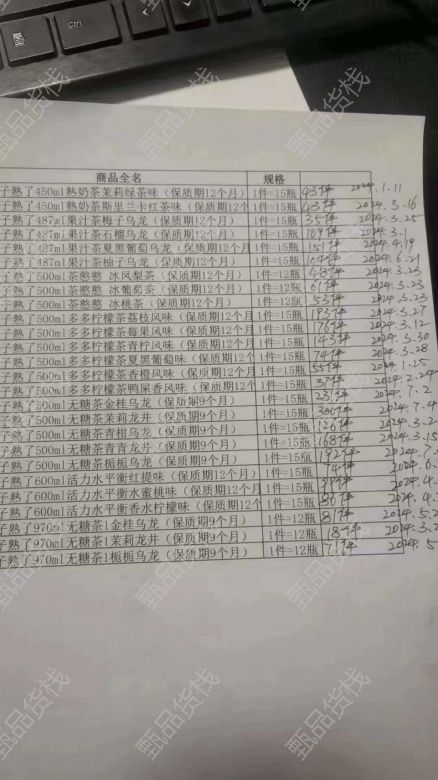 Ctrl
商品全名 规格
子熟了450ml熟奶茶茉莉绿茶味（保质期12个月） 1件=15瓶 43件 2024.1.11
子熟了450ml熟奶茶斯里兰卡红茶味（保质期12个 1件=15瓶 43件 2024.3.16
子熟了487ml果汁茶梅子乌龙（保质期12个月） 1件=15瓶 35件 2024.3.25
子熟了487ml果汁茶石榴乌龙（保质期12个月） 1件=15瓶 109件 2024.3.1
子熟了487ml果汁茶夏黑葡萄乌龙（保质期12个月 1件=15瓶 151件 2024.4.19
子熟了487ml果汁茶柚子乌龙（保质期12个月） 1件=15瓶 2024.6.21
子熟了500ml茶憨憨 冰凤梨茶（保质期12个月） 1件=12瓶 48件 2024.3.23
子熟了500ml茶憨憨 冰葡萄茶（保质期12个月） 1件=12瓶 61件 2024.3.23
子熟了500ml茶憨憨 冰桃茶（保质期12个月） 1件=12瓶 53件 2024.3.23
子熟了500ml多多柠檬茶荔枝风味（保质期12个月 1件=15瓶 193件 2024.3.27
子熟了500ml多多柠檬茶莓果风味（保质期12个月 1件=15瓶 176件 2024.3.12
子熟了500ml多多柠檬茶青柠风味（保质期12个月 1件=15瓶 143件 2024.3.30
子熟了500ml多多柠檬茶夏黑葡萄味（保质期12个 1件=15瓶 74件 2024.3.28
子熟了500ml多多柠檬茶香橙风味（保质期12个月 1件=15瓶 55件 2024.1.25
子熟了500ml多多柠檬茶鸭屎香风味（保质期12个 1件=15瓶 37件 2024.2.24
子熟了500ml无糖茶金桂乌龙（保质期9个月） 1件=15瓶 23件 2024.7.2
子熟了500ml无糖茶茉莉龙井（保质期9个月） 1件=15瓶 2024.7.4
子熟了500ml无糖茶青柑乌龙（保质期9个月） 1件=15瓶 126件 2024.3.2
子熟了500ml无糖茶青青龙井（保质期9个月） 1件=15瓶 168件 2024.3.15
子熟了500ml无糖茶栀栀乌龙（保质期9个月） 1件=15瓶 192件 2024.7.
子熟了600ml活力水平衡红提味（保质期12个月） 1件=15瓶 74件 2024.6.
子熟了600ml活力水平衡水蜜桃味（保质期12个月 1件=15瓶 2024.4.
子熟了600ml活力水平衡香水柠檬味（保质期12个 1件=15瓶 86件 2024.4.
子熟了970ml无糖茶1金桂乌龙（保质期9个月） 1件=12瓶 81件 2024.5.2
子熟了970ml无糖茶1茉莉龙井（保质期9个月） 1件=12瓶 18件 2024.3.2
子熟了970ml无糖茶1栀栀乌龙（保质期9个月） 1件=12瓶 71件 2024.5
甄品货栈